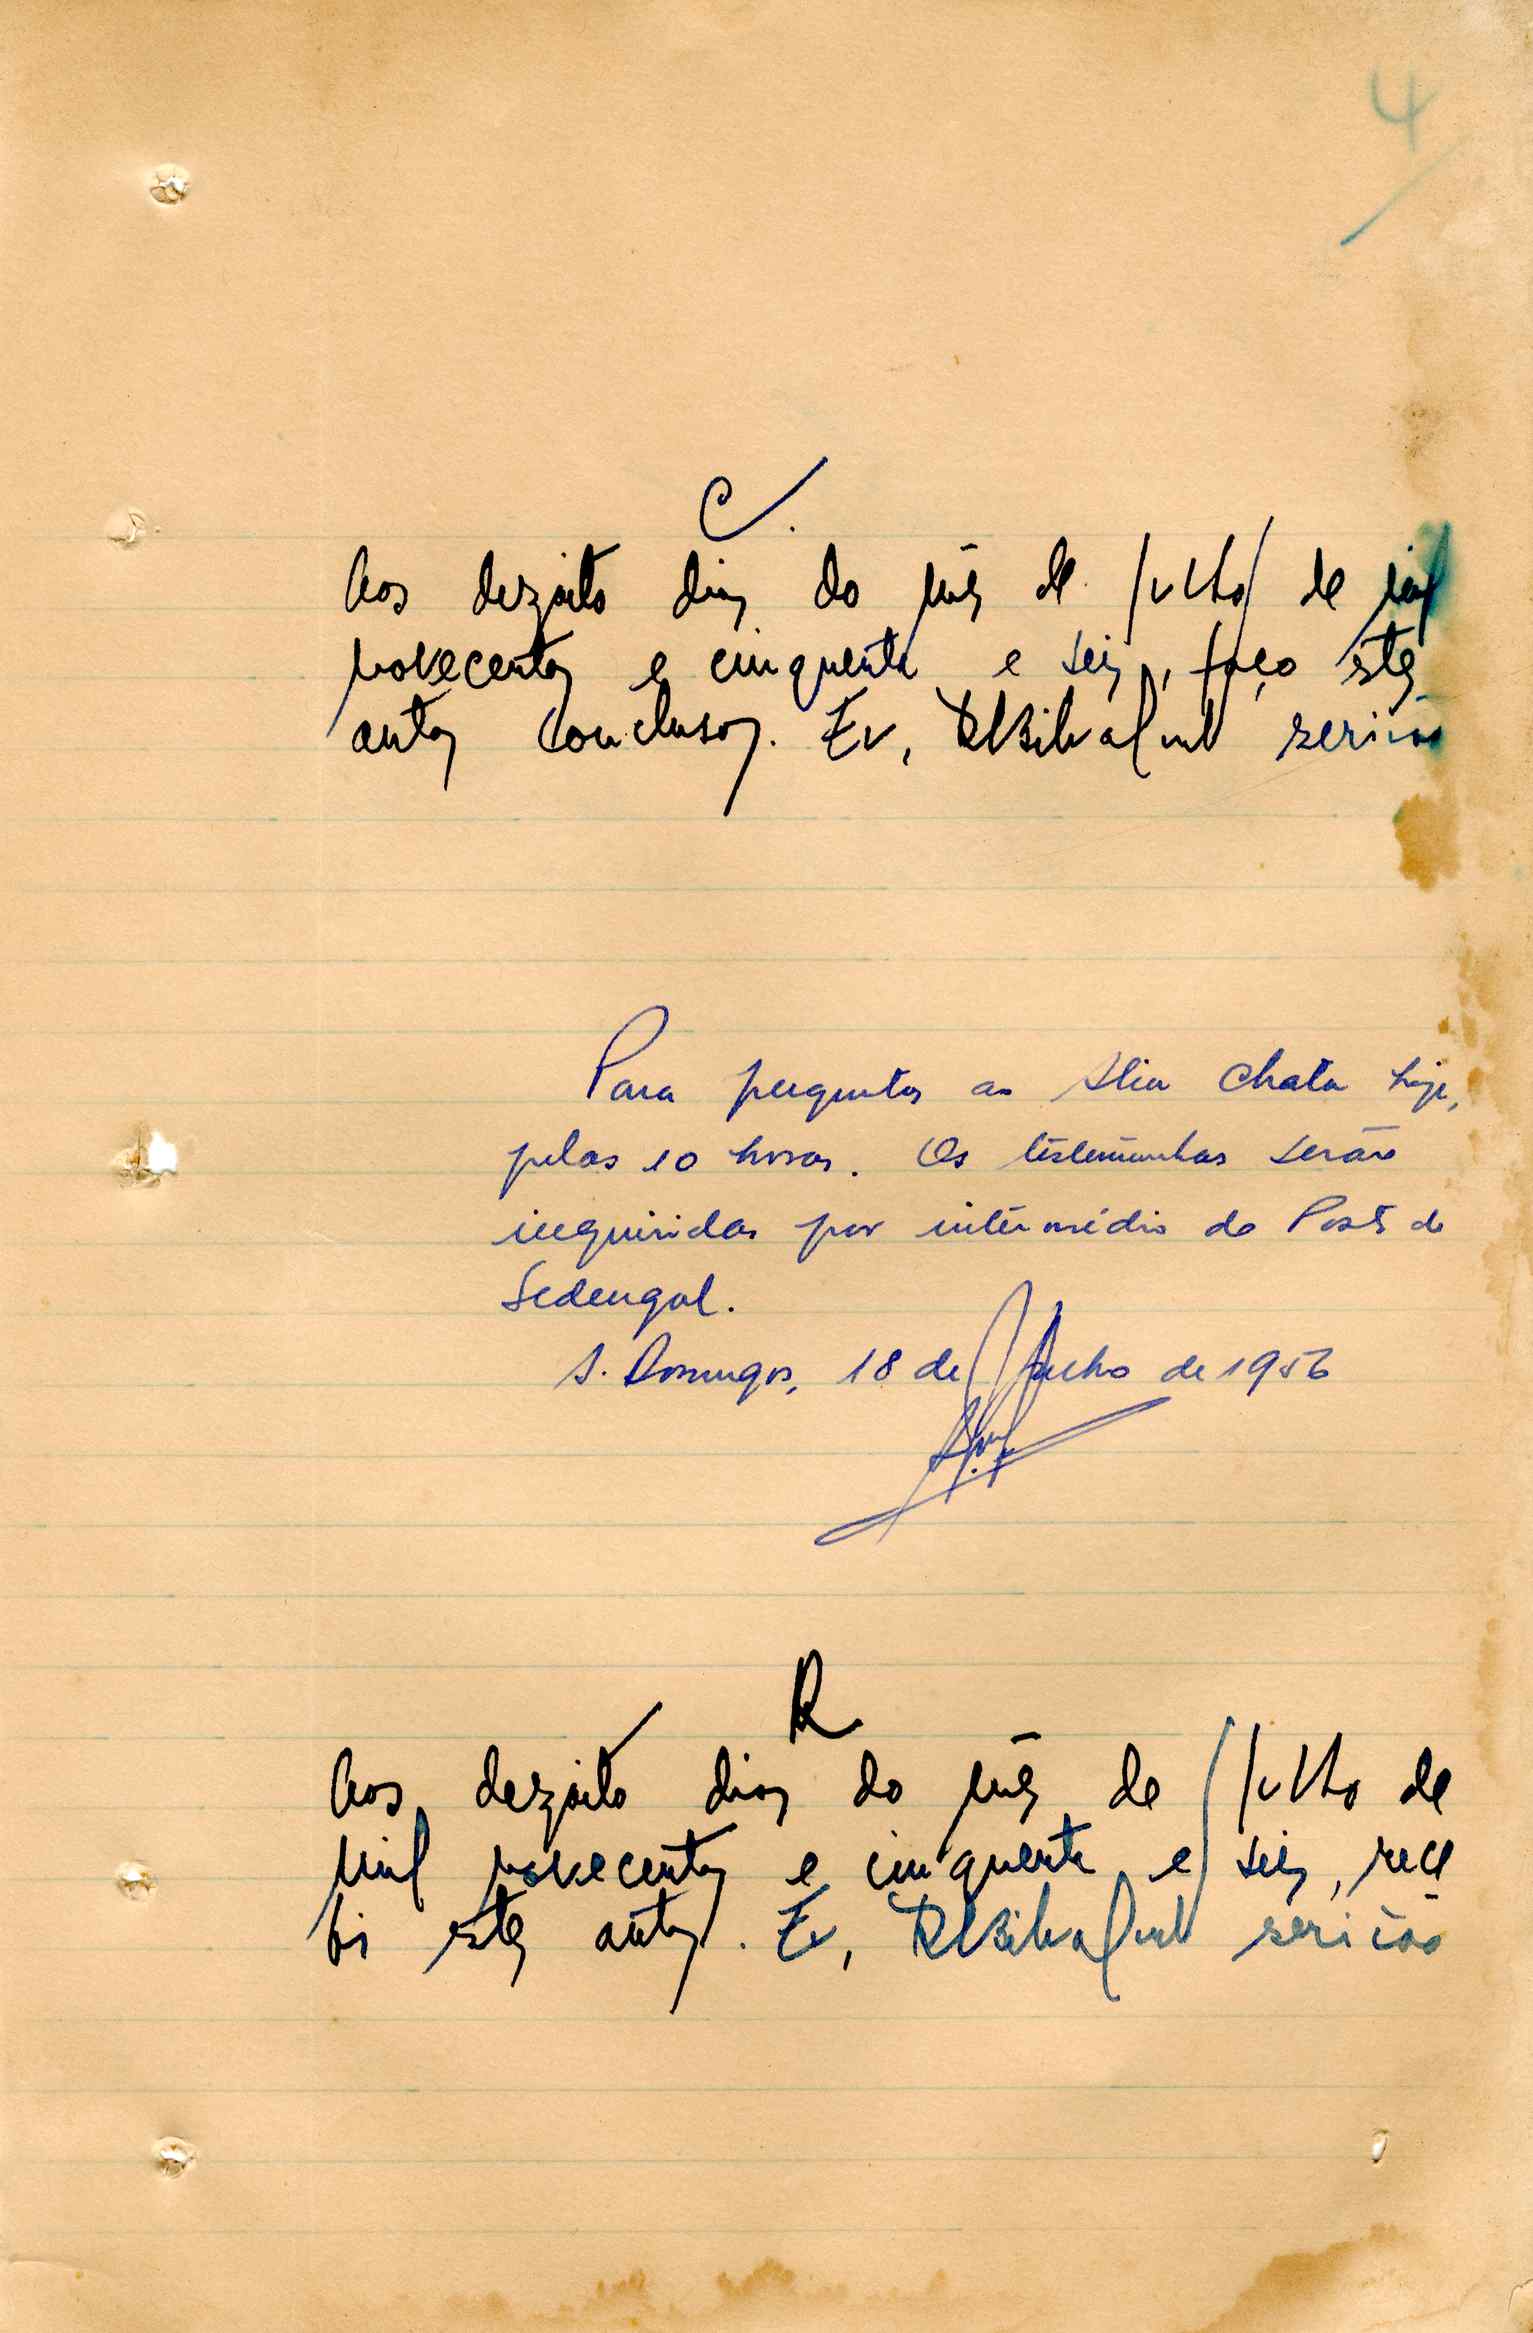 4
C.
Aos dezoito dias do mês de Julho de mil
novecentos e cinquenta e seis, faço estes
autos conclusos. Eu, escrivão
Para perguntas ao Chata hoje,
pelas 10 horas. As testemunhas serão
inquiridas por intermédio do Posto de
Sedengal.
S. Domingos, 18 de Julho de 1956
R.
Aos dezoito dias do mês de Julho de
mil novecentos e cinquenta e seis, rece
bi estes autos. Eu, escrivão